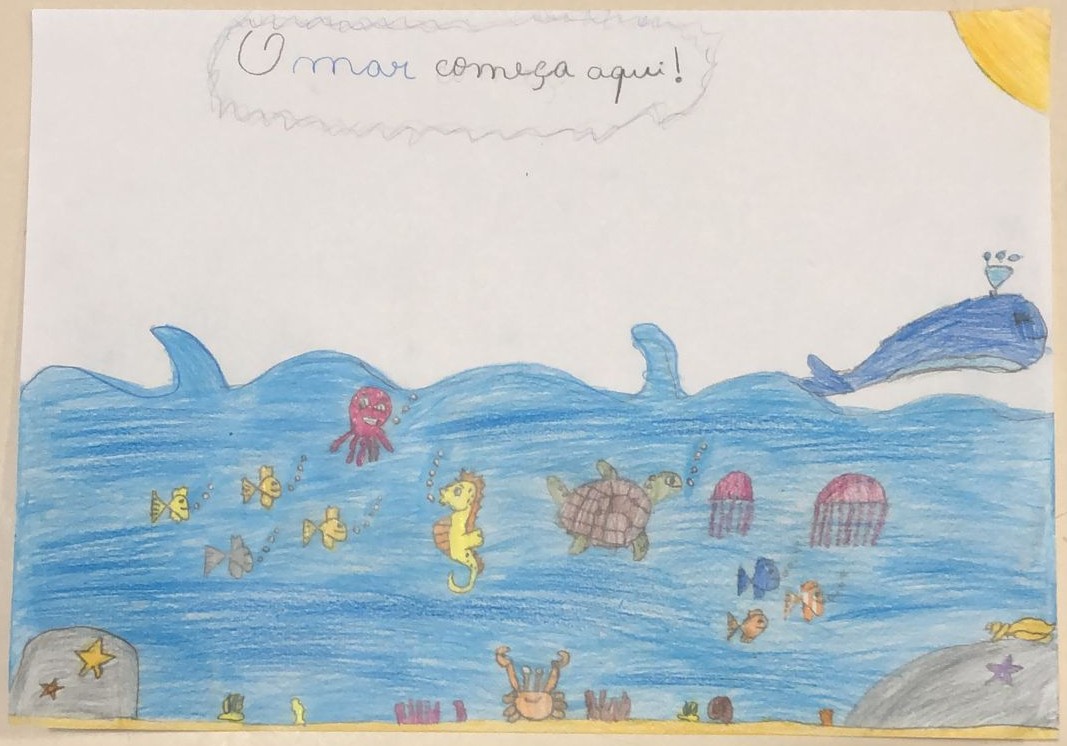 O mar começa aqui!